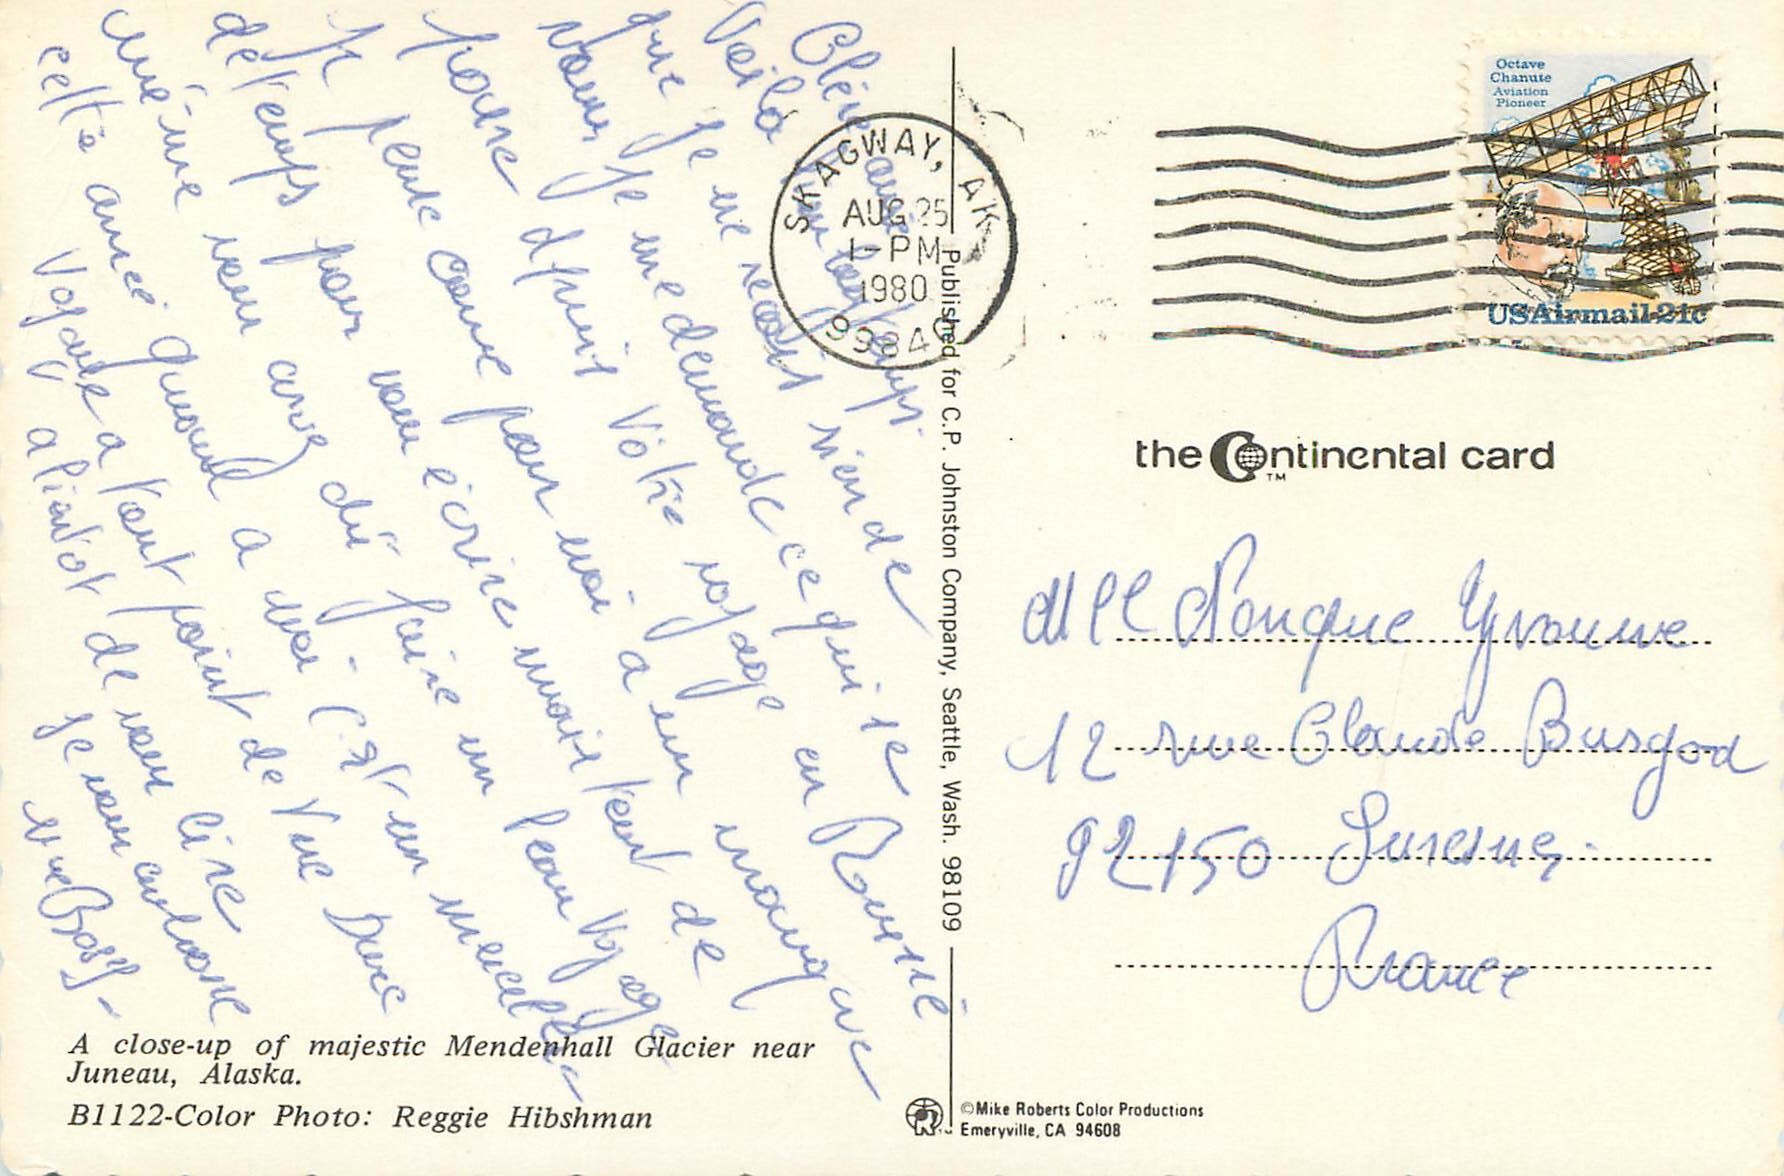 Chère
Voila un longtemps
que je ne reçois rien de
vous, je me demande ce qui se
passe depuis Votre voyage en Roumanie
je pense comme pour moi a un manque
de temps pour vous écrire mais tout de
même vous avez dû faire un beau Voyage
cette année quand a moi c'est un merveilleux
Voyage a tout point de Vue Donc
a bientôt de vous lire
je vous embrasse
SKAGWAY, AK
AUG 25
1-PM
1980
99840
Octave
Chanute
Aviation
Pioneer
USAirmail 21c
the Continental card
TM
Mlle Yvonne
12 rue Claude Burgod
92150 Suresnes.
France
Published for C.P. Johnston Company, Seattle, Wash. 98109
A close-up of majestic Mendenhall Glacier near
Juneau, Alaska.
B1122-Color Photo: Reggie Hibshman
©Mike Roberts Color Productions
Emeryville, CA 94608